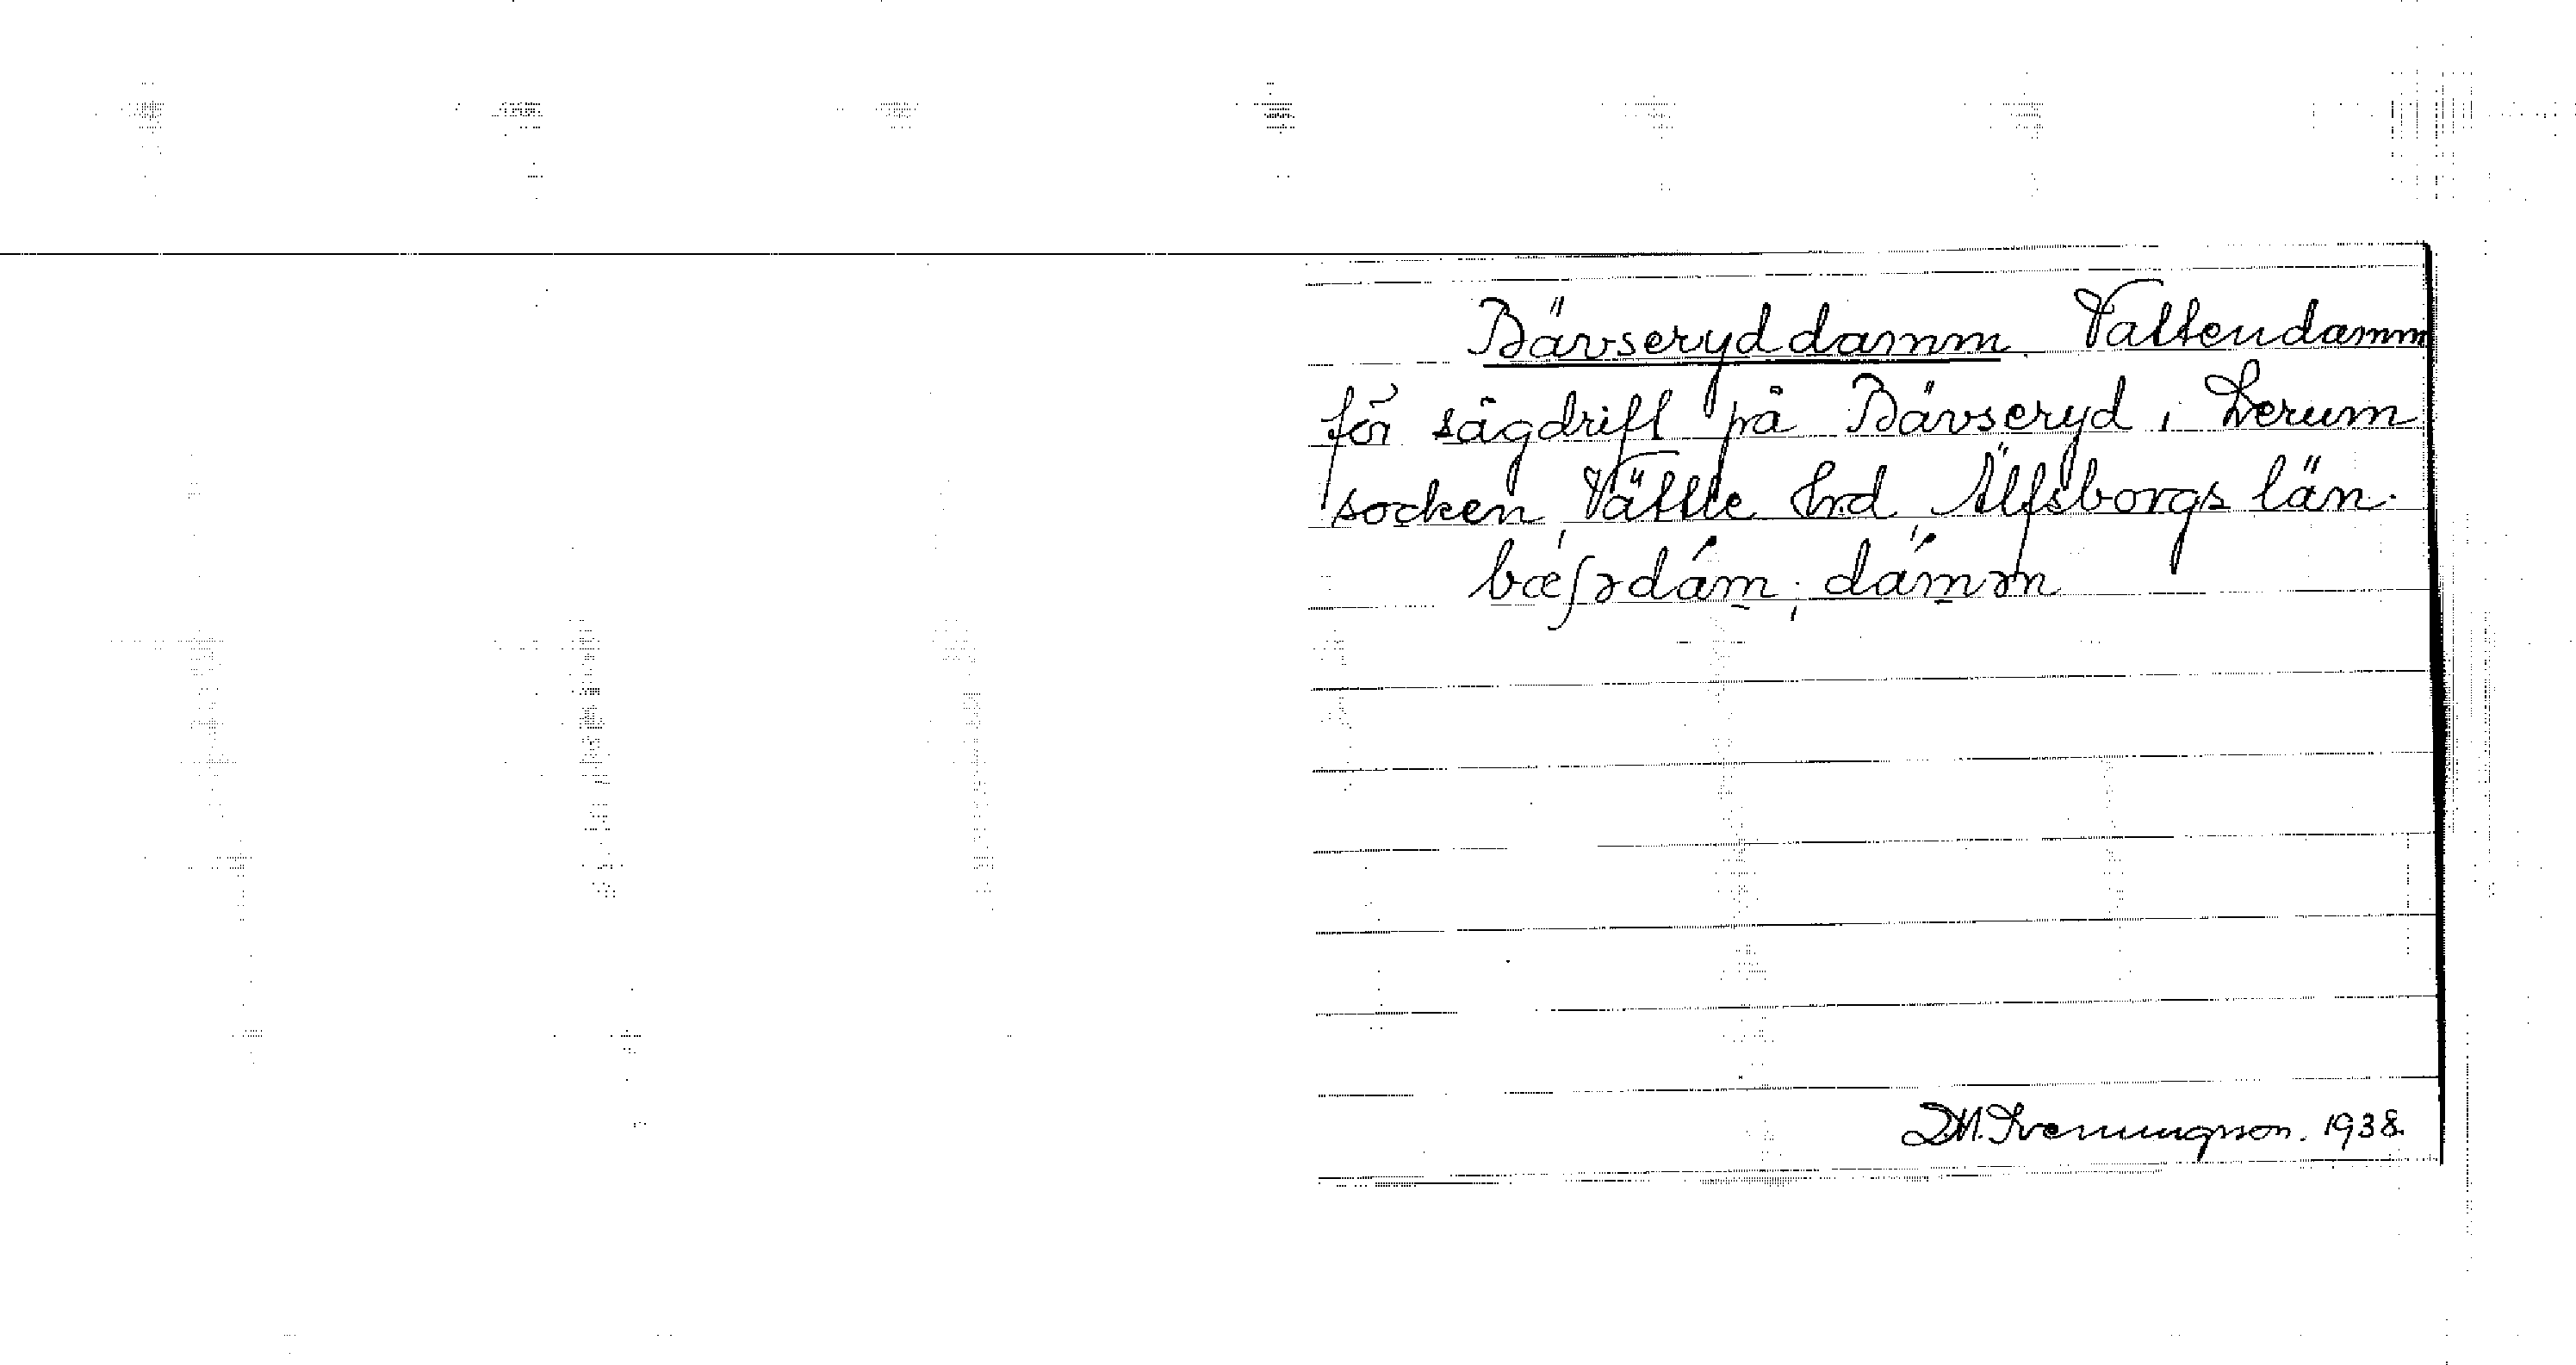 Bävseryd damm. Vattendamm
för sågdrift på Bävseryd i Lerum
socken, Vättle hrd, Älfsborgs län.
bæʃədám; dámən
D.M. Svenungsson. 1938.